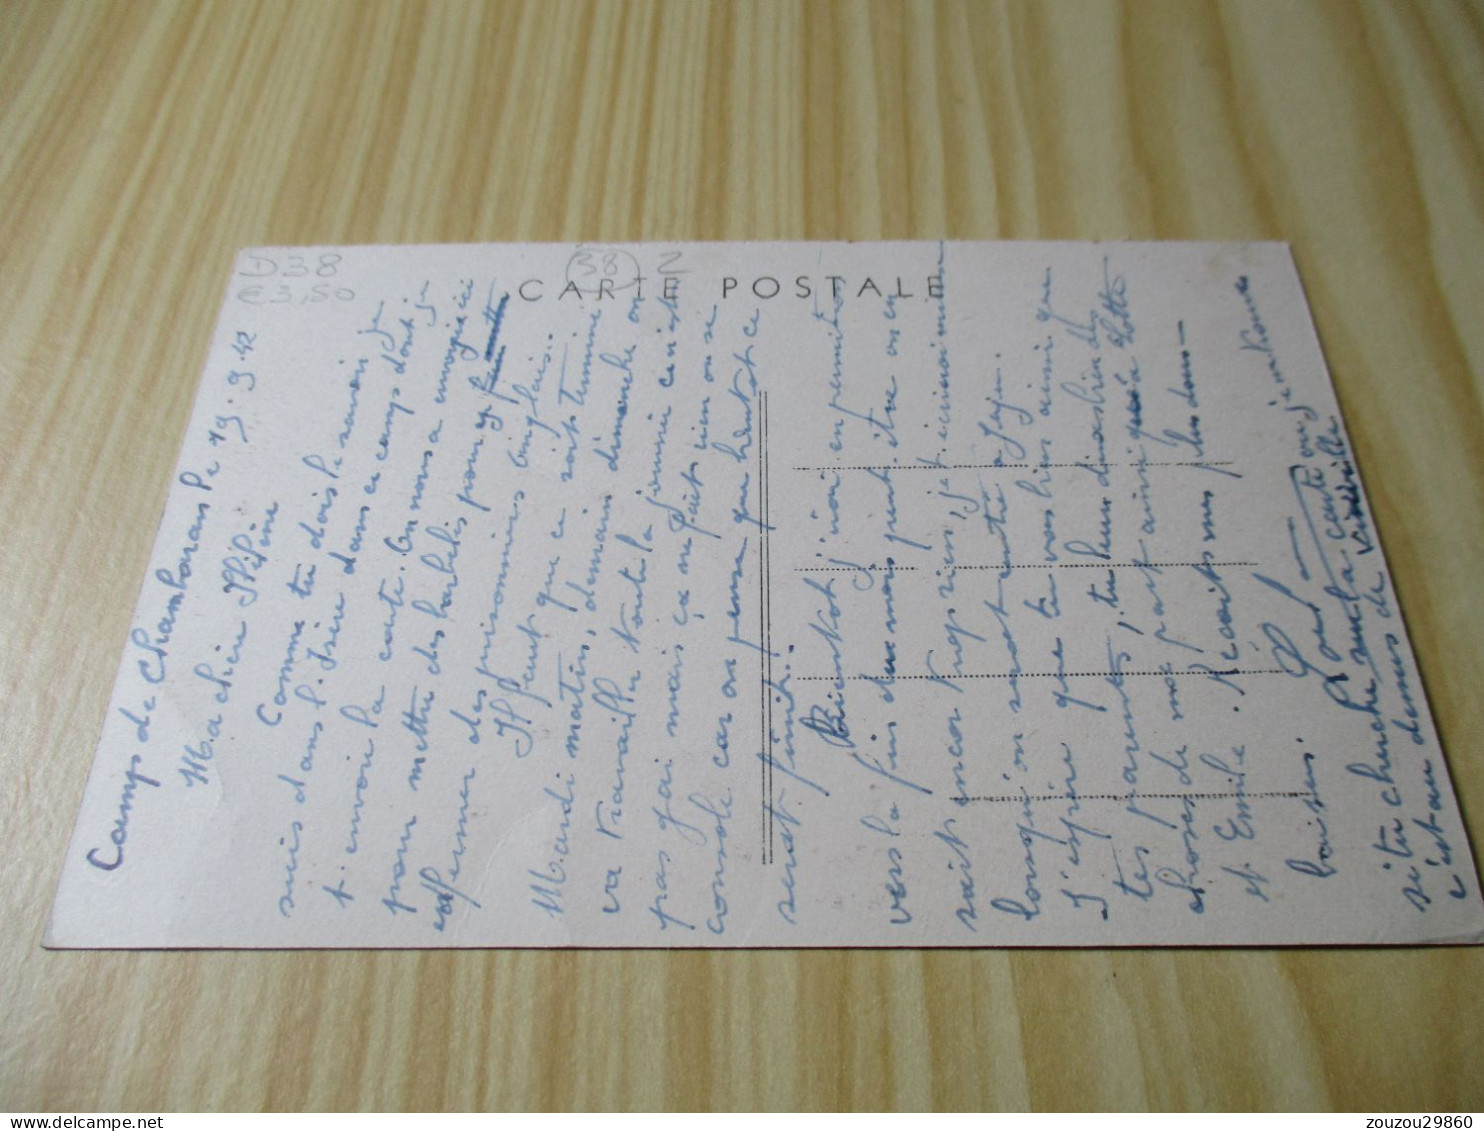 Camps de Chambaran le 19.9.42
Ma chère
Comme tu dois le savoir je
suis dans l'Isère dans ce camps dont je
t'envoie la carte. On nous a envoyé ici
pour mettre des barbelés pour y
enfermer des prisonniers anglais..
Il faut que ce soit terminé
Mardi matin, demain dimanche on
va travailler toute la journée ce n'est
pas gai mais ça ne fait rien on se
console car on pense que bientot ce
serat fini..
Bientot j'irai en permition
vers la fin du mois peut être on en
sait encor trop rien, je t'écrirai
lorsqu'on serat rentré a
J'espère que tu vas bien ainsi que
tes parents, tu leur diras bien des
choses de ma part ainsi qu'à Lotte
et Emile. Recoits mes plus doux
baisers.
Paul
si tu cherche sur la carte ou je me trouve
c'est au dessus de
CARTE POSTALE
D38
€3,50
38
Z
zouzou29860